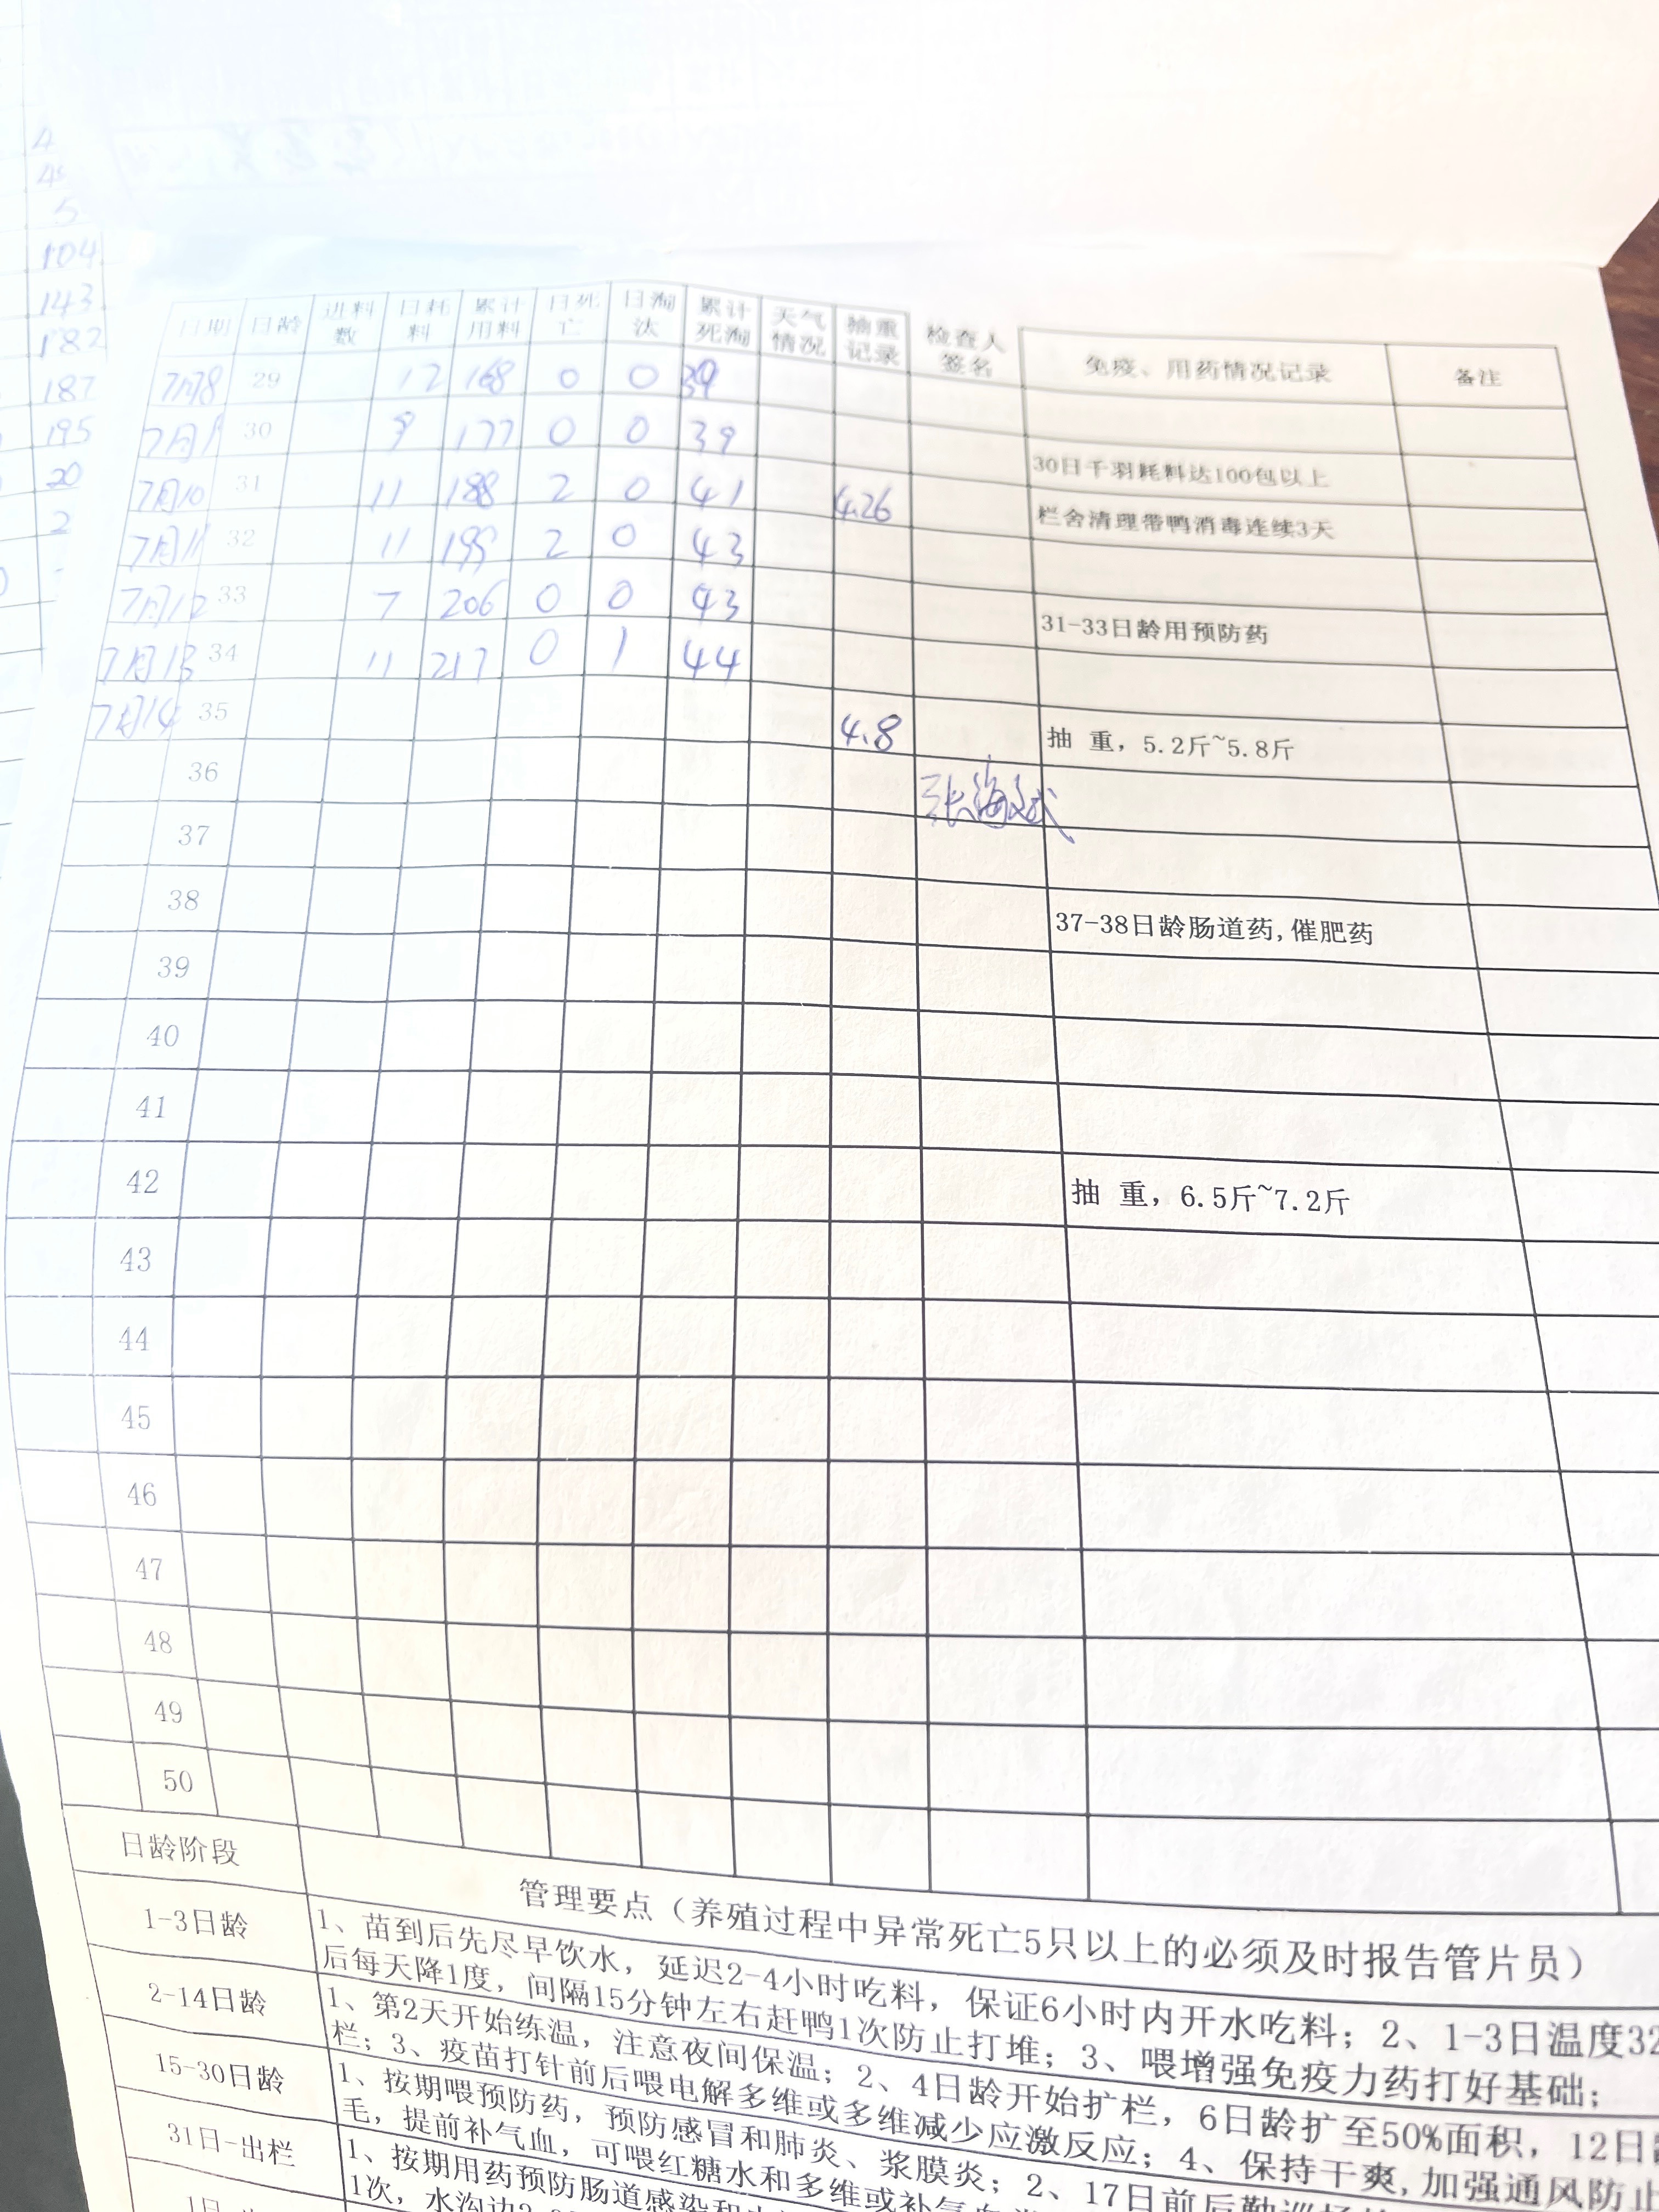 4
5
104
143
182
187
195
20
2
日期 日龄 进料数 日耗料 累计用料 日死亡 日淘汰 累计死淘 天气情况 抽重记录 检查人签名 免疫、用药情况记录 备注
7月8 29 12 168 0 0 39
7月9 30 9 177 0 0 39 30日千羽耗料达100包以上
7月10 31 11 188 2 0 41 4.26 栏舍清理带鸭消毒连续3天
7月11 32 11 199 2 0 43
7月12 33 7 206 0 0 43 31-33日龄用预防药
7月13 34 11 217 0 1 44
7月14 35 4.8 抽 重, 5.2斤~5.8斤
36
37
38 37-38日龄肠道药,催肥药
39
40
41
42 抽 重, 6.5斤~7.2斤
43
44
45
46
47
48
49
50
日龄阶段 管理要点（养殖过程中异常死亡5只以上的必须及时报告管片员）
1-3日龄 1、苗到后先尽早饮水，延迟2-4小时吃料，保证6小时内开水吃料；2、1-3日温度32
后每天降1度，间隔15分钟左右赶鸭1次防止打堆；3、喂增强免疫力药打好基础；
2-14日龄 1、第2天开始练温，注意夜间保温；2、4日龄开始扩栏，6日龄扩至50%面积，12日
栏；3、疫苗打针前后喂电解多维或多维减少应激反应；4、保持干爽,加强通风防止
15-30日龄 1、按期喂预防药，预防感冒和肺炎、浆膜炎；2、17日前后勤
毛，提前补气血，可喂红糖水和多维或补气血
31日-出栏 1、按期用药预防肠道感染和
1次，水沟边2